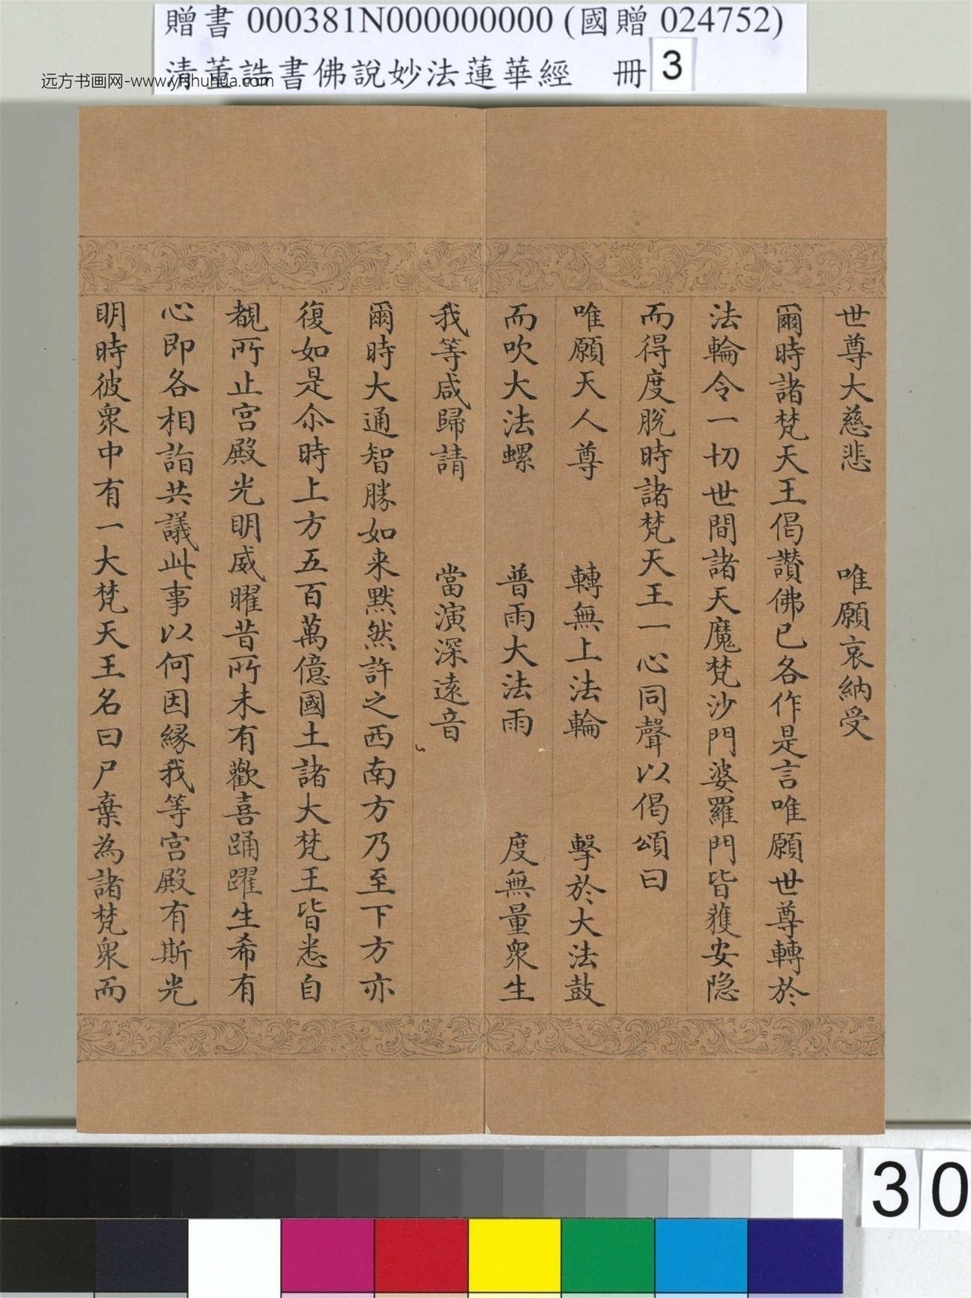 贈書 000381N000000000 (國贈 024752)
清董誥書佛說妙法蓮華經 冊 3
远方书画网-www.yfshuhua.com
世尊大慈悲 唯願哀納受
爾時諸梵天王偈讚佛已各作是言唯願世尊轉於
法輪令一切世間諸天魔梵沙門婆羅門皆獲安隐
而得度脫時諸梵天王一心同聲以偈頌曰
唯願天人尊 轉無上法輪 擊於大法鼓
而吹大法螺 普雨大法雨 度無量衆生
我等咸歸請 當演深遠音
爾時大通智勝如来黙然許之西南方乃至下方亦
復如是尒時上方五百萬億國土諸大梵王皆悉自
覩所止宫殿光明威曜昔所未有歡喜踊躍生希有
心即各相詣共議此事以何因緣我等宫殿有斯光
明時彼衆中有一大梵天王名曰尸棄為諸梵衆而
30